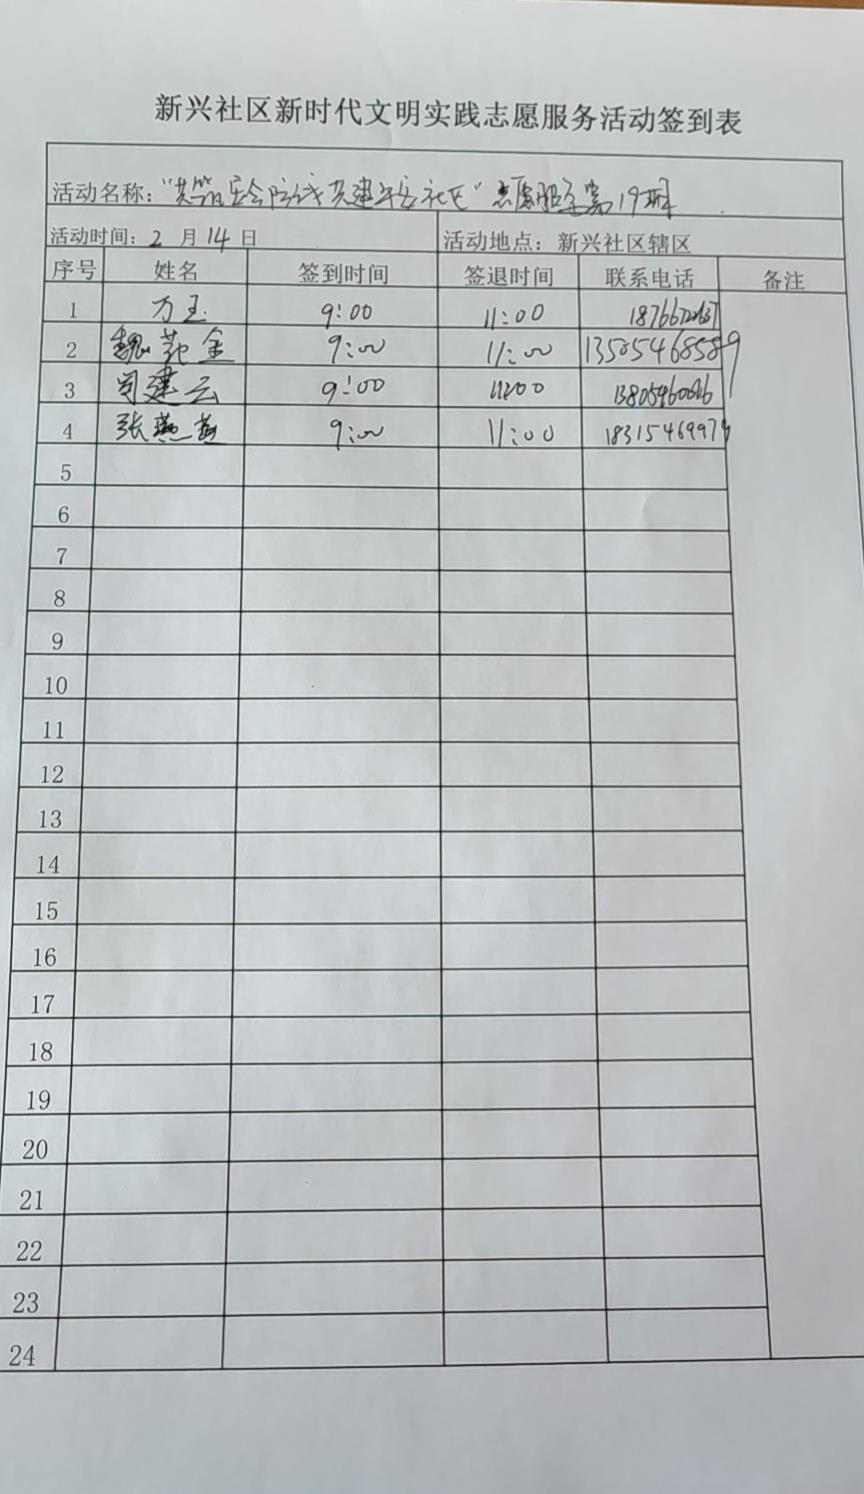 新兴社区新时代文明实践志愿服务活动签到表
活动名称：“共筑安全防线 共建平安社区”志愿服务第19期
活动时间：2 月 14 日 活动地点：新兴社区辖区
序号 姓名 签到时间 签退时间 联系电话 备注
1 万玉 9:00 11:00
2 魏 金 9:00 11:00 13505468589
3 建云 9:00 11:00
4 张燕燕 9:00 11:00 1831546997
5
6
7
8
9
10
11
12
13
14
15
16
17
18
19
20
21
22
23
24